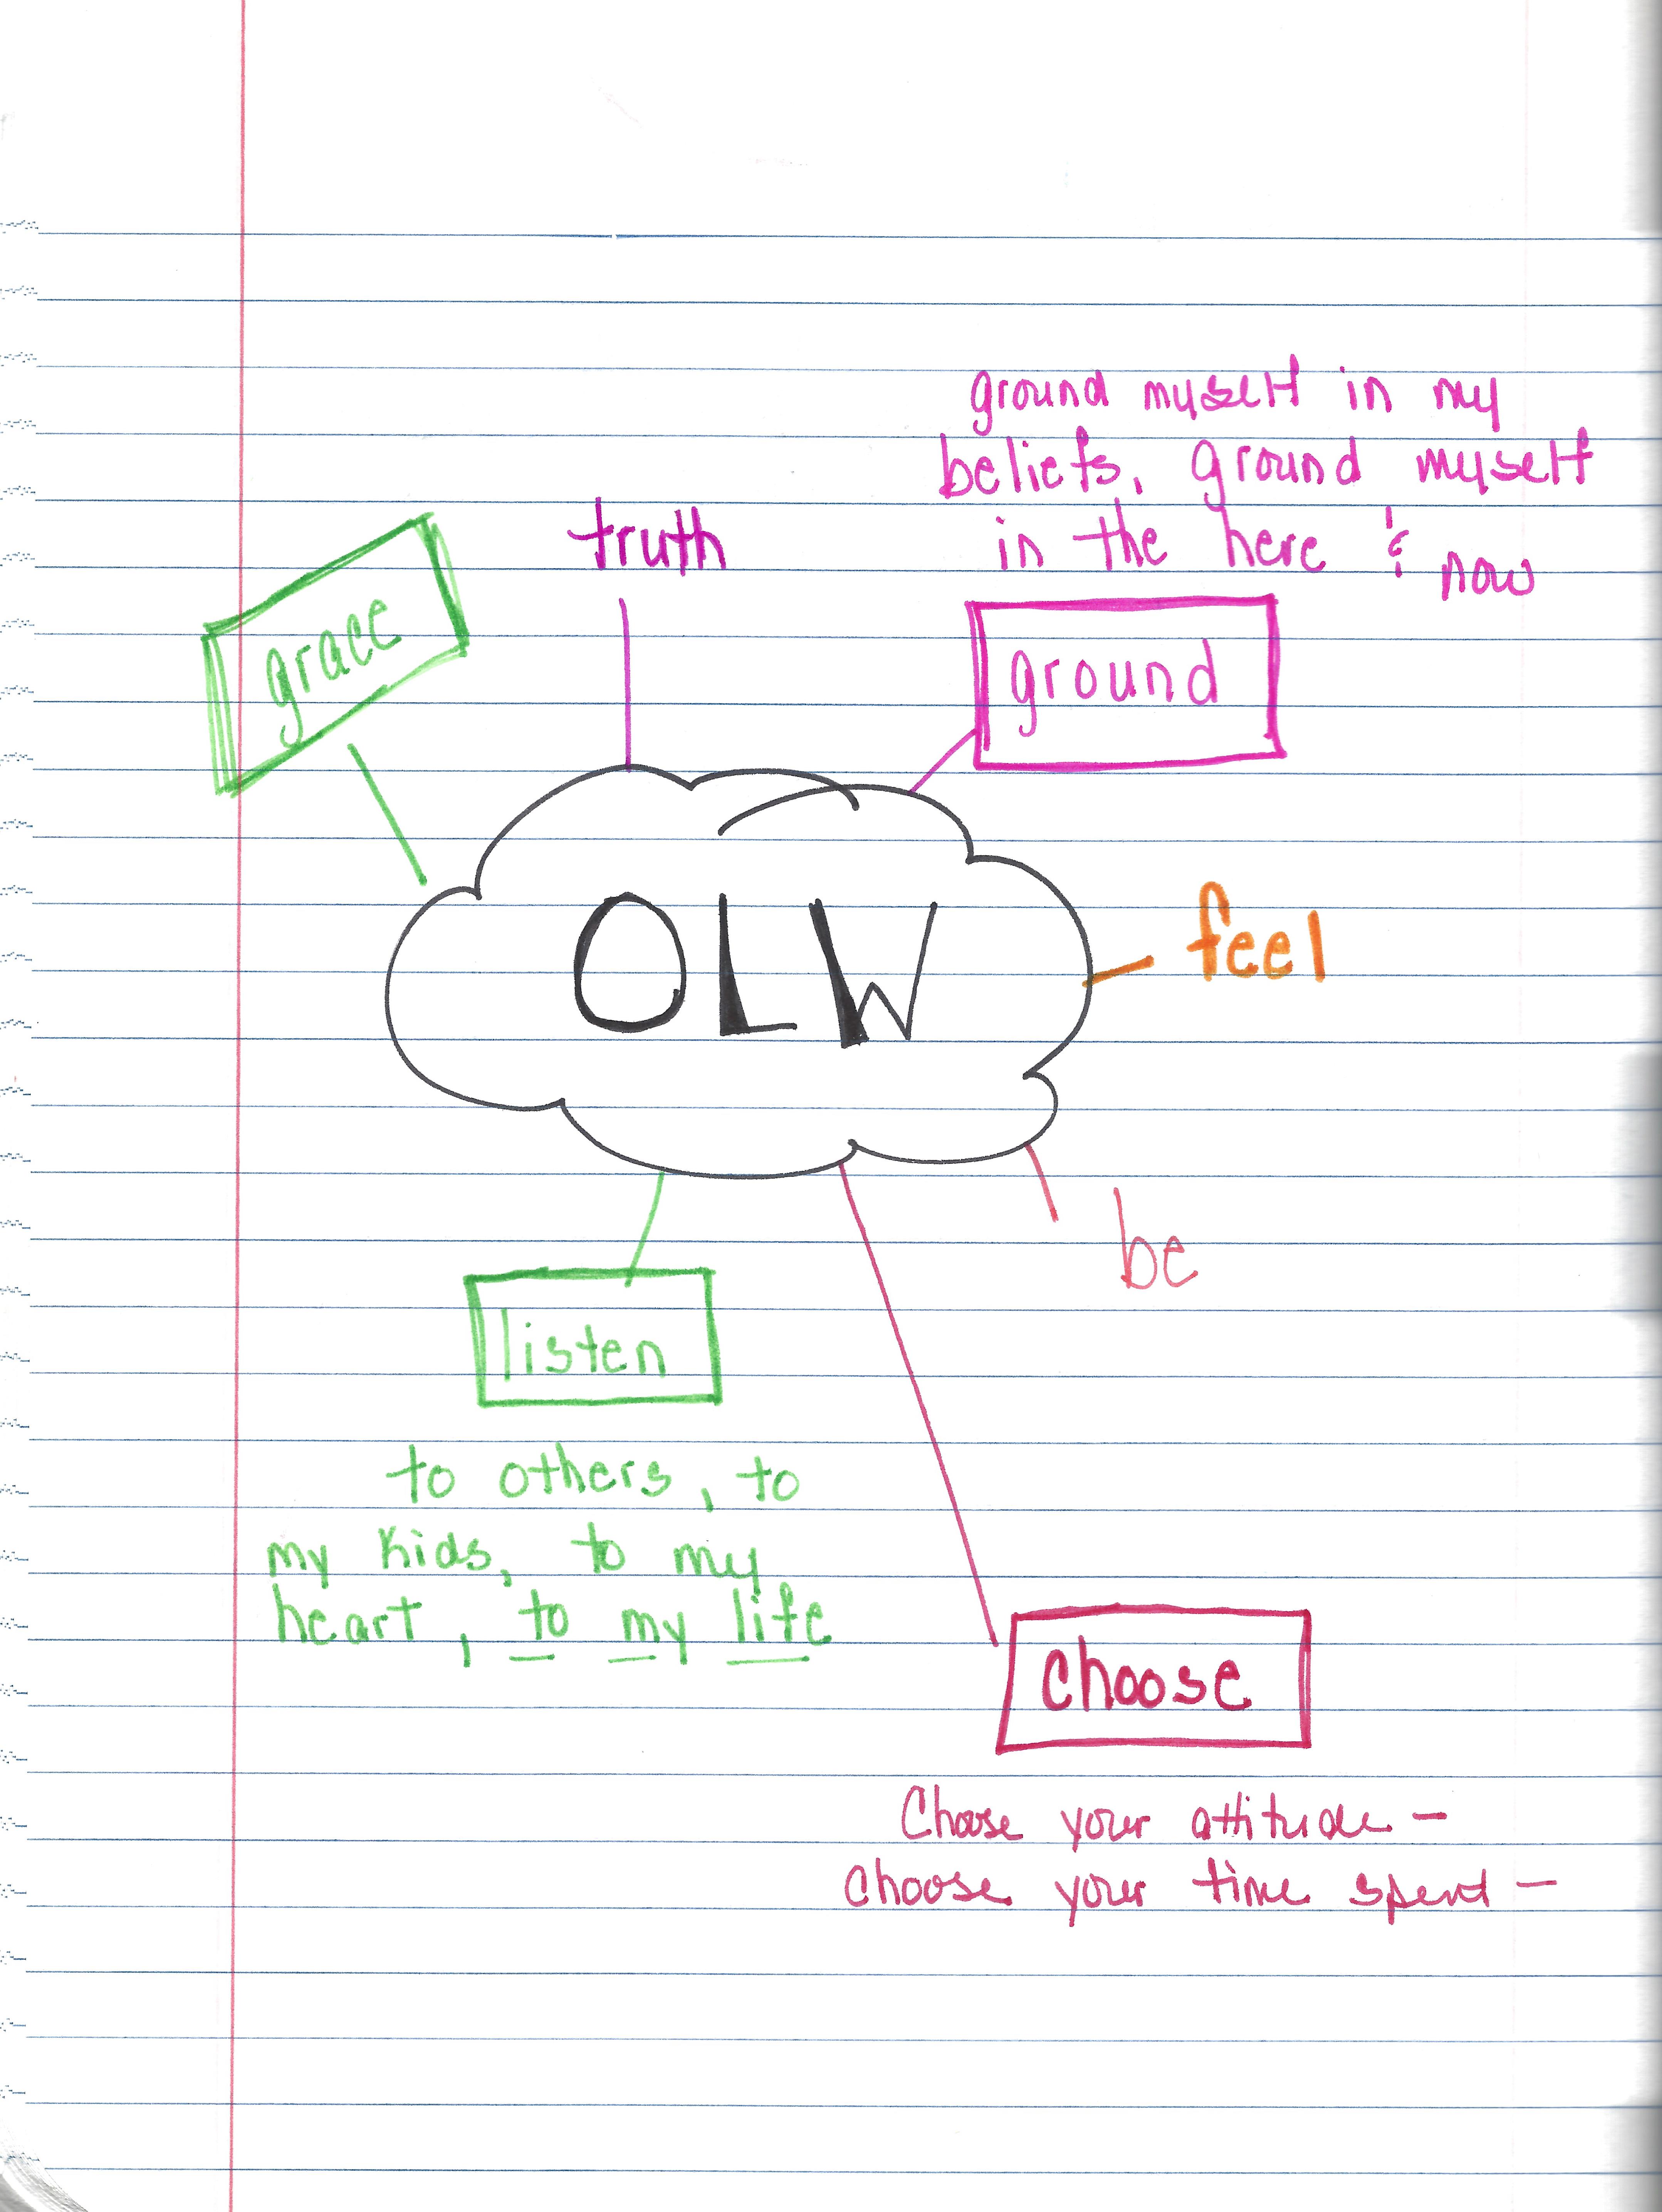 ground myself in my
beliefs, ground myself
in the here & now
truth
grace
ground
OLW
feel
be
listen
to others, to
my kids, to my
heart, to my life
choose
Choose your attitude —
choose your time spent —